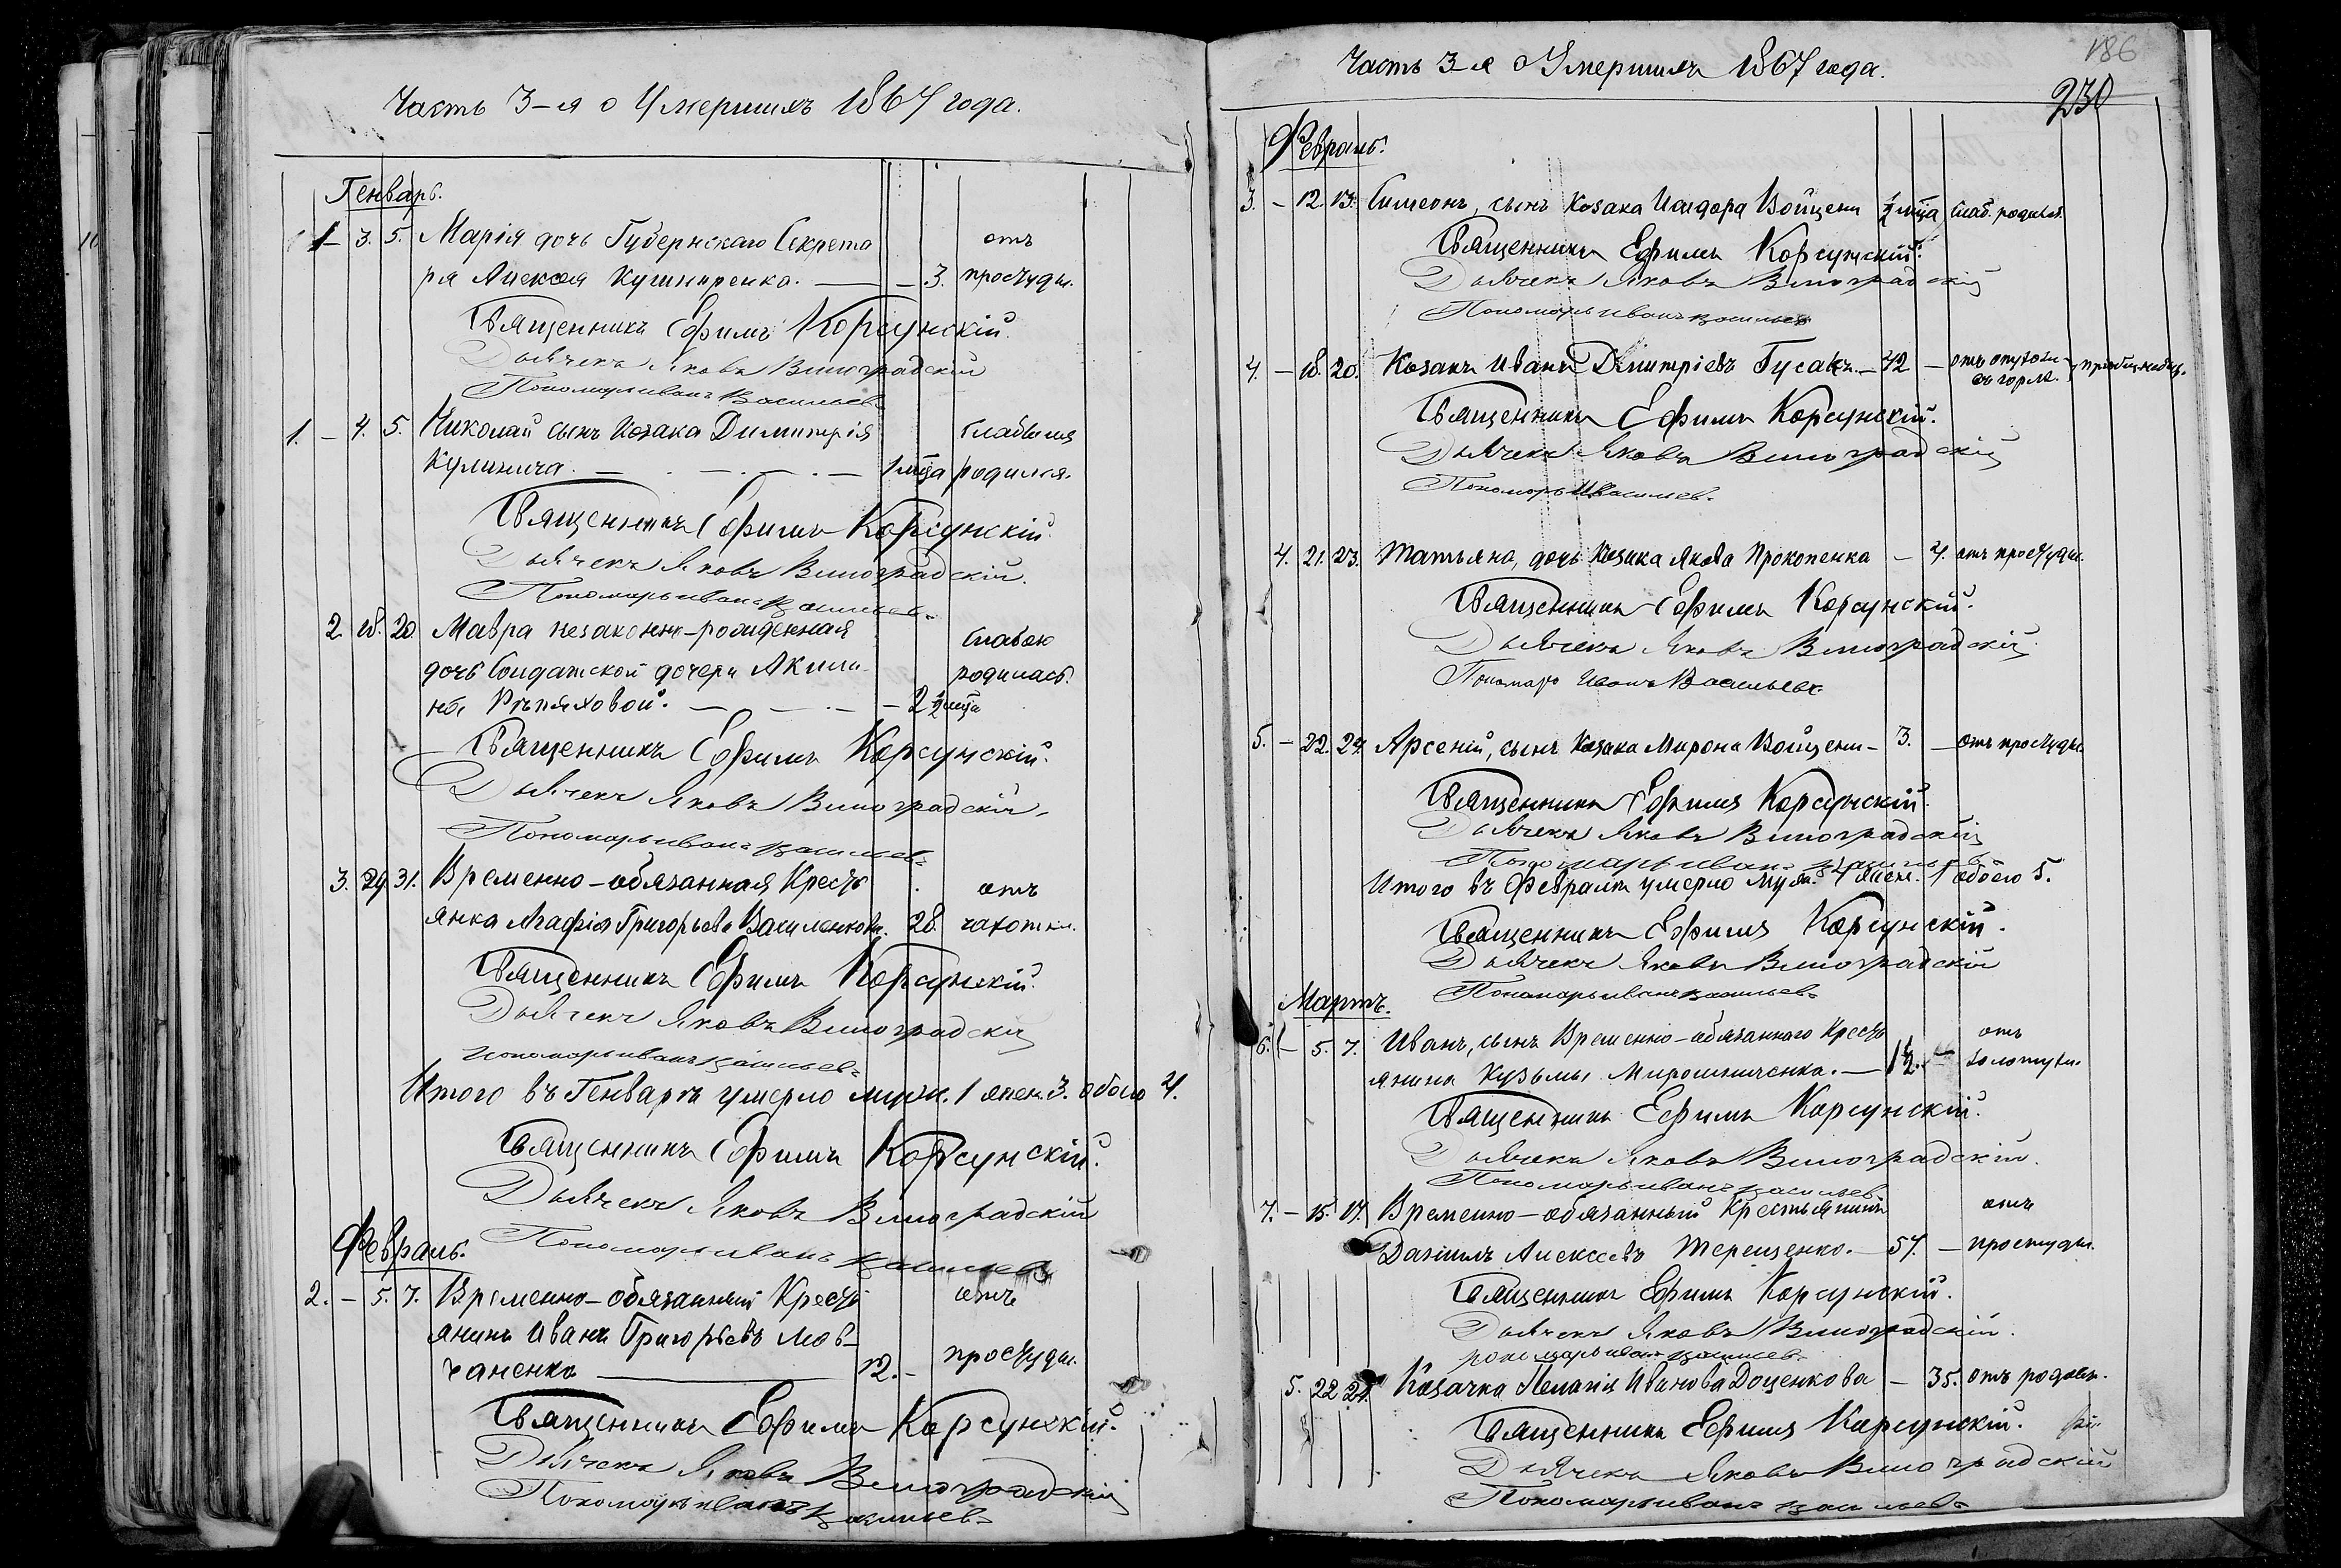 Часть 3-я о Умершихъ 1867 года.
Генварь.
1 - 3. 5. Марія дочь Губернскаго Секрета отъ
ря Алексея Кушниренка. — - 3. простуды.
Священникъ Ефимъ Корсунскій.
Дьячекъ Яковъ Виноградскій
Пономарь Иванъ Васильевъ
1. - 4. 5. Николай сынъ Козака Димитрія слабымъ
Кулинича. — 1 мца родился.
Священникъ Ефимъ Корсунскій.
Дьячекъ Яковъ Виноградскій.
Пономарь Иванъ Васильевъ
2. 18. 20. Мавра незаконно-рожденная слабою
дочь Солдатской дочери Акили- родилась.
ны Рѣпяховой. — 2 1/2 мца
Священникъ Ефимъ Корсунскій.
Дьячекъ Яковъ Виноградскій.
Пономарь Иванъ Васильевъ
3. 29. 31. Временно-обязанная Кресть отъ
янка Агафія Григорьева Василенкова. 28. чахотки.
Священникъ Ефимъ Корсунскій.
Дьячекъ Яковъ Виноградскій
Пономарь Иванъ Васильевъ
Итого въ Генварѣ умерло муж. 1 жен. 3. обоего 4.
Священникъ Ефимъ Корсунскій.
Дьячекъ Яковъ Виноградскій
Пономарь Иванъ Васильевъ
Февраль.
2. - 5. 7. Временно-обязанный Кресть отъ
янинъ Иванъ Григорьевъ Мов-
чаненко — 12. - простуды.
Священникъ Ефимъ Корсунскій.
Дьячекъ Яковъ Виноградскій
Пономарь Иванъ Васильевъ
186
Часть 3-я о Умершихъ 1867 года.
230
Февраль.
3. - 12. 13. Симеонъ, сынъ Козака Исидора Войцени 1/2 мца слаб. родился.
Священникъ Ефимъ Корсунскій.
Дьячекъ Яковъ Виноградскій
Пономарь Иванъ Васильевъ
4. - 18. 20. Козакъ Иванъ Димитріевъ Гусакъ. - 72 - отъ опухоли
въ горлѣ.
Священникъ Ефимъ Корсунскій.
Дьячекъ Яковъ Виноградскій
Пономарь И Васильев.
4. 21. 23. Татьяна, дочь Козака Якова Прокопенка - 4. отъ простуды.
Священникъ Ефимъ Корсунскій.
Дьячекъ Яковъ Виноградскій
Пономарь Иванъ Васильевъ
5. - 22. 24. Арсеній, сынъ Козака Мирона Войцени - 3. - отъ простуды.
Священникъ Ефимъ Корсунскій.
Дьячекъ Яковъ Виноградскій
Пономарь Иванъ Васильевъ
Итого въ Февралѣ умерло муж. 4 жен. 1 обоего 5.
Священникъ Ефимъ Корсунскій.
Дьячекъ Яковъ Виноградскій
Пономарь Иванъ Васильевъ
Мартъ.
6. - 5. 7. Иванъ, сынъ Временно-обязаннаго Кресть отъ
янина Кузьмы Мирошниченка. — 1 1/2. - золотухи.
Священникъ Ефимъ Корсунскій.
Дьячекъ Яковъ Виноградскій.
Пономарь Иванъ Васильевъ
7. - 15. 17. Временно-обязанный Крестьянинъ отъ
Даніилъ Алексеевъ Терещенко. - 57. - простуды.
Священникъ Ефимъ Корсунскій.
Дьячекъ Яковъ Виноградскій.
Пономарь Иванъ Васильевъ
5. 22 24. Козачка Пелагія Иванова Доценкова - 35. отъ родовъ.
Священникъ Ефимъ Корсунскій.
Дьячекъ Яковъ Виноградскій
Пономарь Иванъ Васильевъ